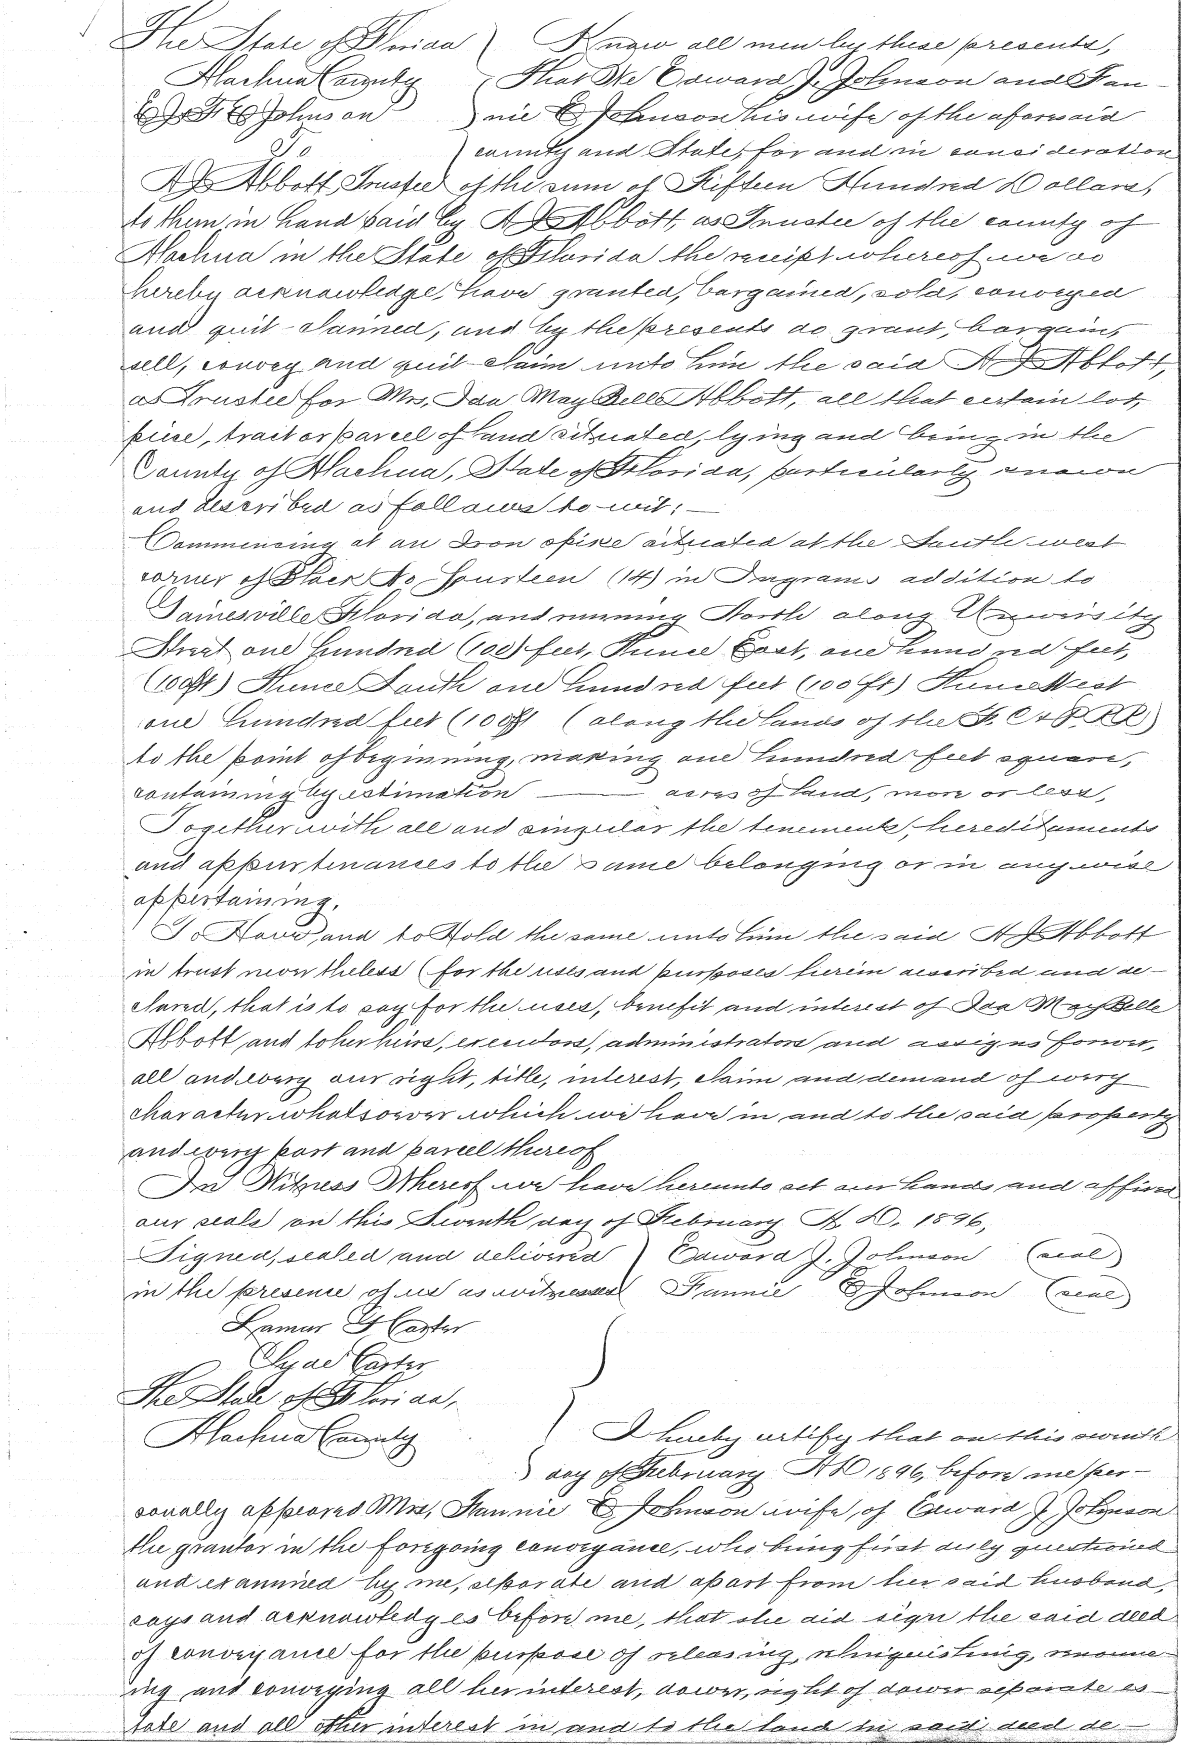 The State of Florida ) Know all men by these presents,
Alachua County ( That We Edward J. Johnson and Fan-
E. J. & F. E. Johnson ) nie E Johnson his wife of the aforesaid
To ) county and State, for and in consideration
A J Abbott, Trustee of the sum of Fifteen Hundred Dollars,
to them in hand paid by A J Abbott, as Trustee of the county of
Alachua in the State of Florida the receipt whereof we do
hereby acknowledge, have granted, bargained, sold, conveyed
and quit-claimed, and by the presents do grant, bargain,
sell, convey and quit-claim unto him the said A J Abbott,
as Trustee for Mrs, Ida May Belle Abbott, all that certain lot,
piece, trait or parcel of land situated, lying and being in the
County of Alachua, State of Florida, particularly known
and described as follows to-wit; —
Commencing at an Iron spike situated at the South-west
corner of Block No Fourteen (14) in Ingrams addition to
Gainesville Florida, and running North along University
Street one hundred (100) feet, Thence East, one hundred feet,
(100ft) Thence South one hundred feet (100 ft) Thence West
one hundred feet (100ft (along the lands of the F. C & P. RR)
to the point of beginning, making one hundred feet square,
containing by estimation ——— acres of land, more or less,
Together with all and singular the tenements, hereditaments
and appurtenances to the same belonging or in anywise
appertaining.
To Have and to Hold the same unto him the said A J Abbott
in trust nevertheless (for the uses and purposes herein described and de-
clared, that is to say for the uses, benefit and interest of Ida May Belle
Abbott and to her heirs, executors, administrators and assigns forever,
all and every our right, title, interest, claim and demand of every
character whatsoever which we have in and to the said property
and every part and parcel thereof
In Witness Whereof we have hereunto set our hands and affixed
our seals on this Seventh day of February A. D. 1896,
Signed, sealed and delivered ) Edward J. Johnson (seal)
in the presence of us as witnesses ( Fannie E Johnson (seal)
Lamar G Carter
Clyde Carter
The State of Florida,
Alachua County ) I hereby certify that on this seventh
) day of February A D 1896, before me per-
sonally appeared Mrs, Fannie E Johnson wife, of Edward J. Johnson
the grantor in the foregoing conveyance, who being first duly questioned
and examined by me, separate and apart from her said husband,
says and acknowledges before me, that she did sign the said deed
of conveyance for the purpose of releasing, relinquishing, renounc-
ing and conveying all her interest, dower, right of dower separate es-
tate and all other interest in and to the land in said deed de-